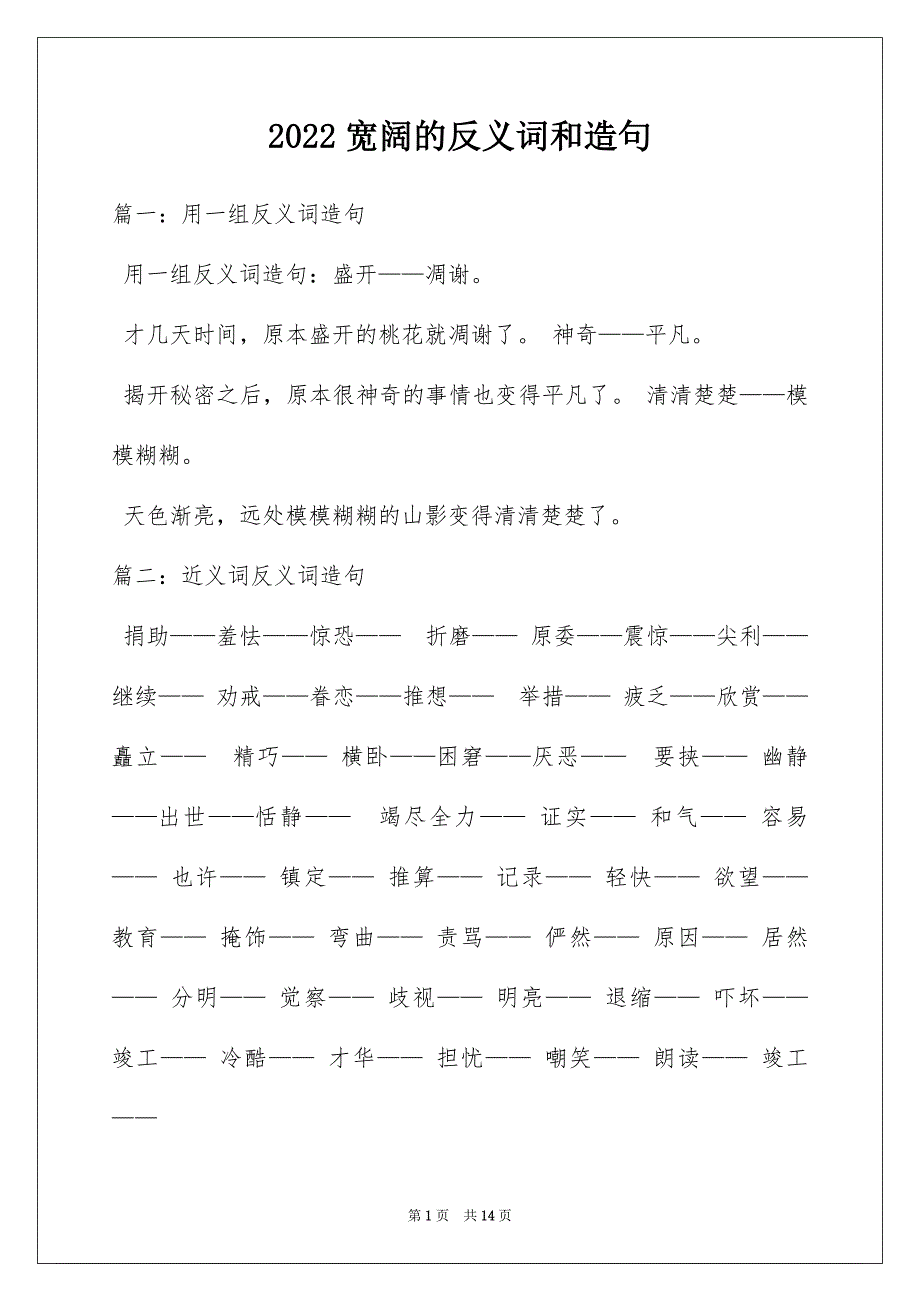 2022宽阔的反义词和造句
篇一：用一组反义词造句
用一组反义词造句：盛开——凋谢。
才几天时间，原本盛开的桃花就凋谢了。 神奇——平凡。
揭开秘密之后，原本很神奇的事情也变得平凡了。 清清楚楚——模
模糊糊。
天色渐亮，远处模模糊糊的山影变得清清楚楚了。
篇二：近义词反义词造句
捐助——羞怯——惊恐—— 折磨—— 原委——震惊——尖利——
继续—— 劝戒——眷恋——推想—— 举措—— 疲乏——欣赏——
矗立—— 精巧—— 横卧——困窘——厌恶—— 要挟—— 幽静
——出世——恬静—— 竭尽全力—— 证实—— 和气—— 容易
—— 也许—— 镇定—— 推算—— 记录—— 轻快—— 欲望——
教育—— 掩饰—— 弯曲—— 责骂—— 俨然—— 原因—— 居然
—— 分明—— 觉察—— 歧视—— 明亮—— 退缩—— 吓坏——
竣工—— 冷酷—— 才华—— 担忧—— 嘲笑—— 朗读—— 竣工
——
第 1 页 共 14 页